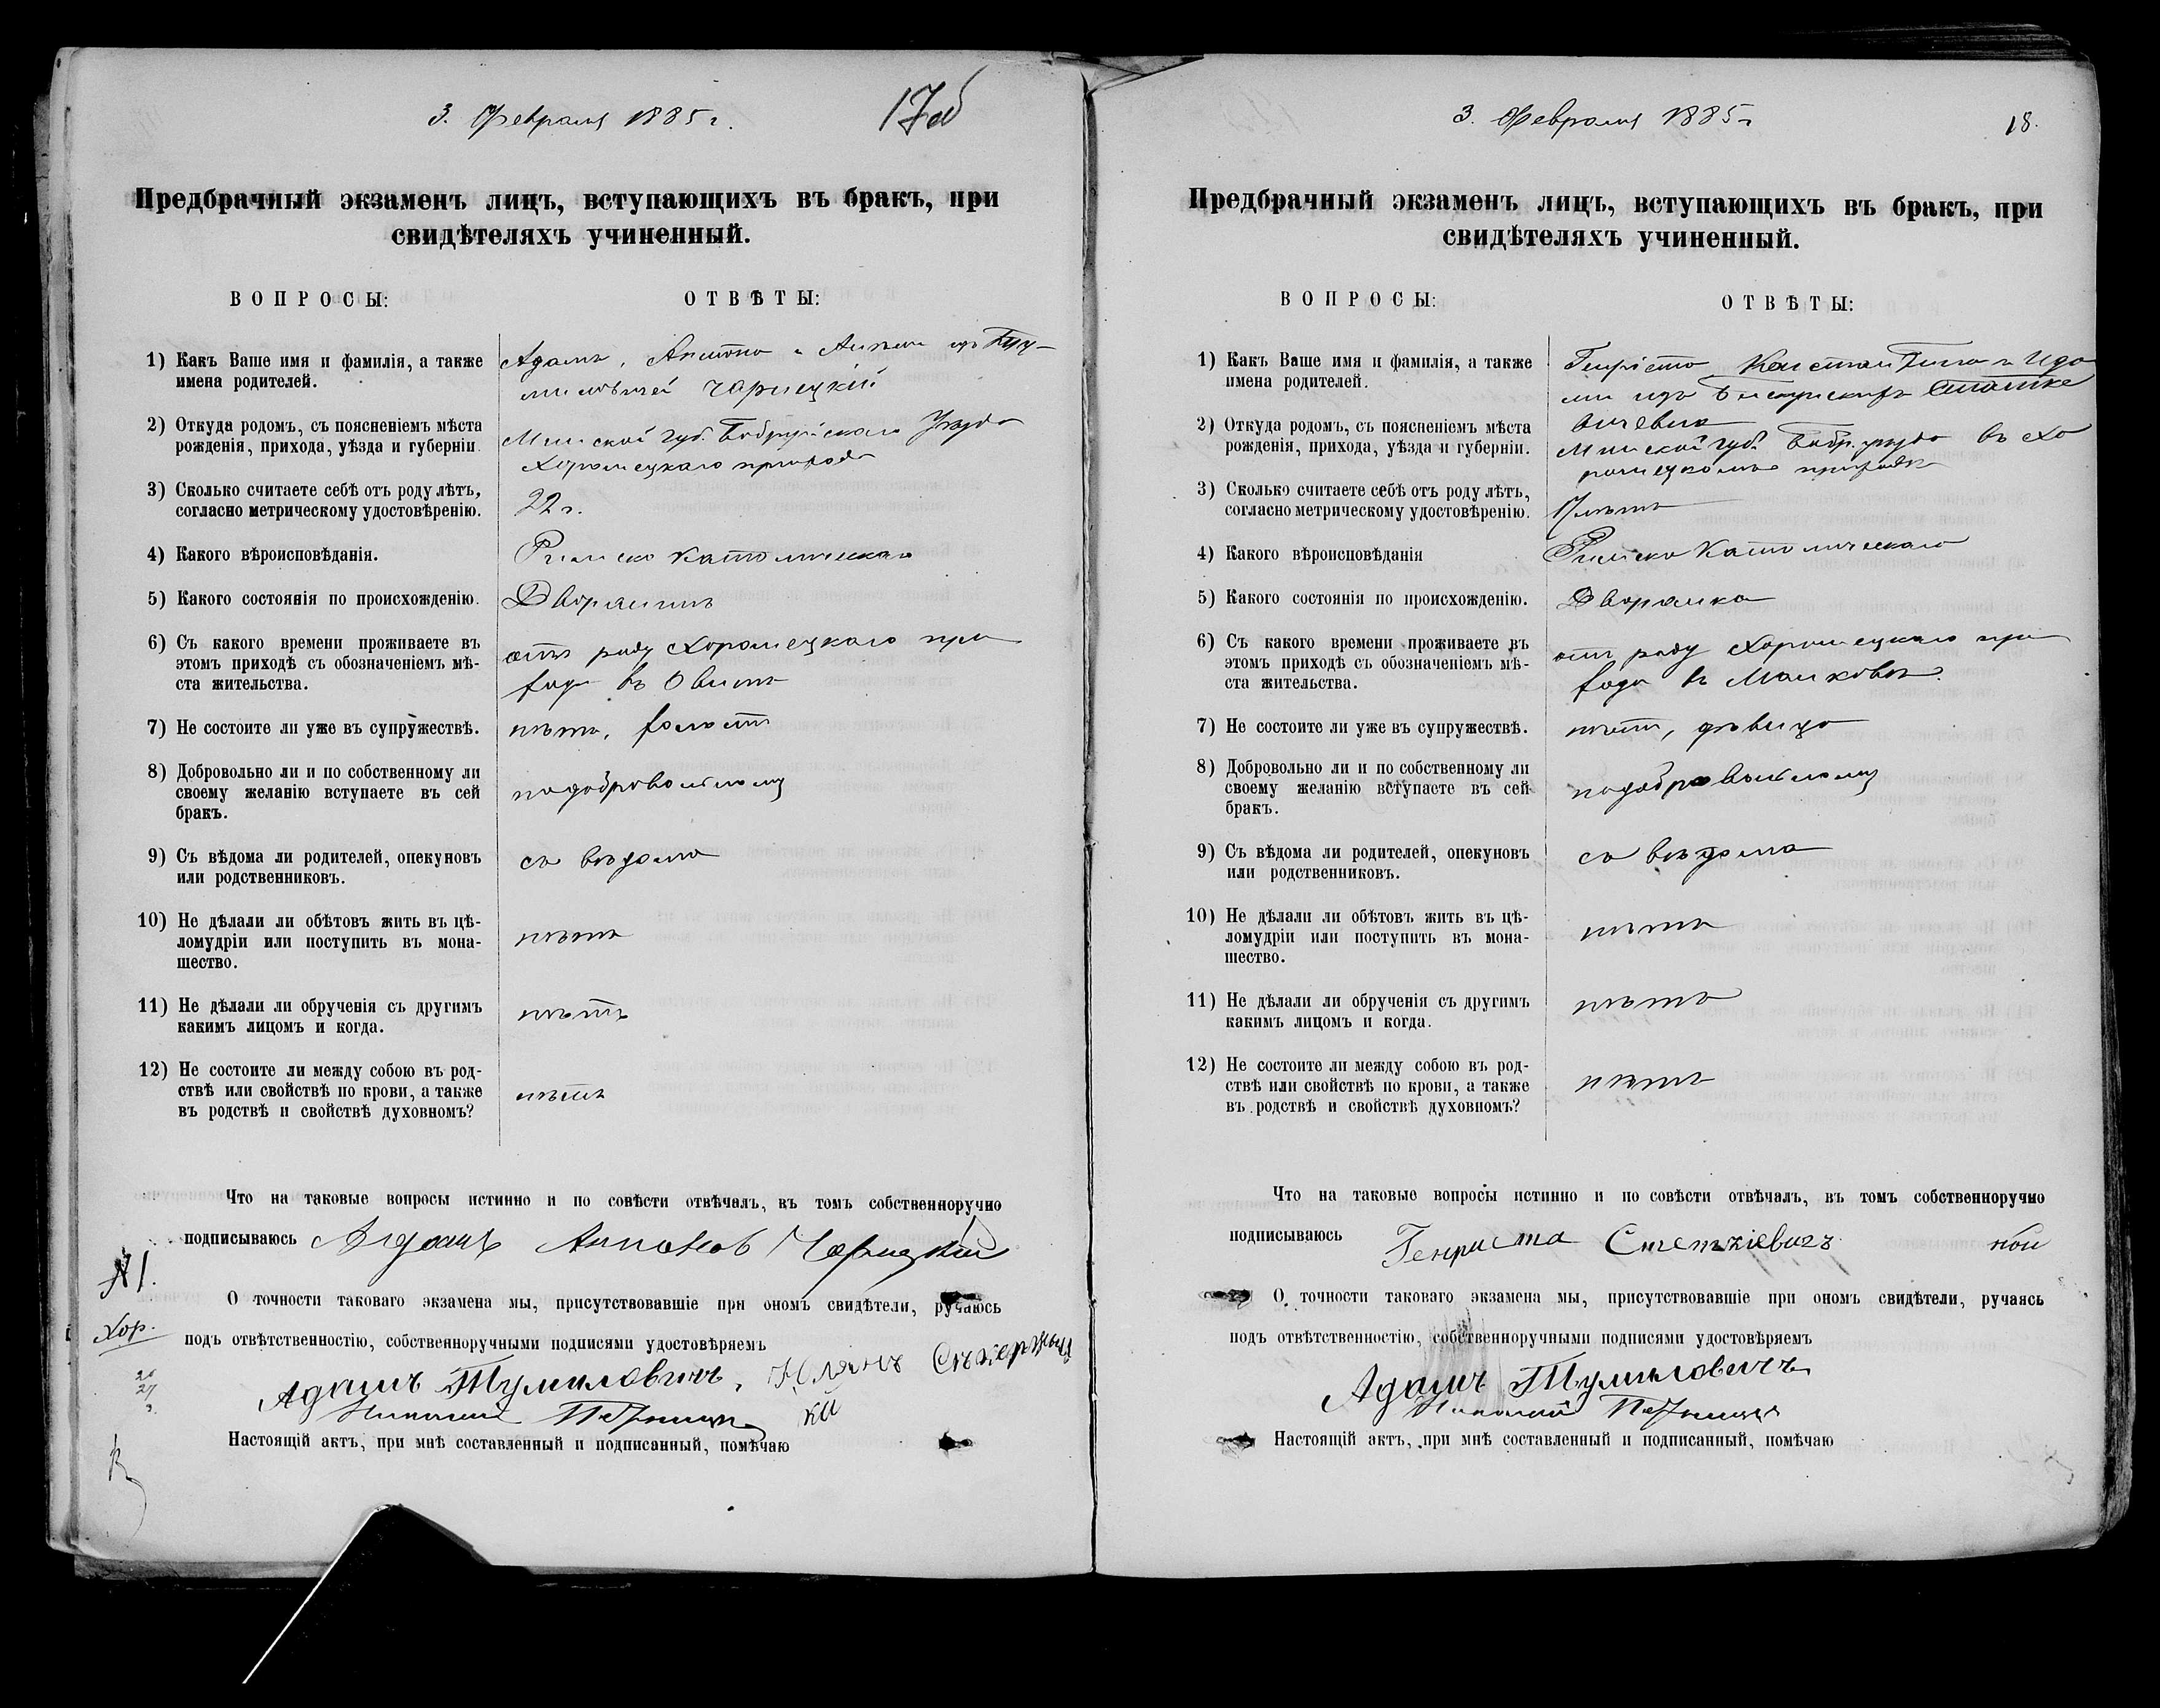 3. Февраля 1885 г.
17об
Предбрачный экзаменъ лицъ, вступающихъ въ бракъ, при
свидѣтеляхъ учиненный.
ВОПРОСЫ:
ОТВѢТЫ:
1) Какъ Ваше имя и фамилія, а также
имена родителей.
Адамъ, Антона и
Чарнецкій
2) Откуда родомъ, съ поясненіемъ мѣста
рожденія, прихода, уѣзда и губерніи.
Минской губ. Бобруйскаго Уѣзда
Хоромецкаго прихода
3) Сколько считаете себѣ отъ роду лѣтъ,
согласно метрическому удостовѣренію.
22 г.
4) Какого вѣроисповѣданія.
Римско Католическаго
5) Какого состоянія по происхожденію.
Дворянинъ
6) Съ какого времени проживаете въ
этомъ приходѣ съ обозначеніемъ мѣ-
ста жительства.
отъ роду Хоромецкаго при
хода въ
7) Не состоите ли уже въ супружествѣ.
нѣтъ, холостъ
8) Добровольно ли и по собственному ли
своему желанію вступаете въ сей
бракъ.
подобровольному
9) Съ вѣдома ли родителей, опекуновъ
или родственниковъ.
съ вѣдома
10) Не дѣлали ли обѣтовъ жить въ цѣ-
ломудріи или поступить въ мона-
шество.
нѣтъ
11) Не дѣлали ли обрученія съ другимъ
какимъ лицомъ и когда.
нѣтъ
12) Не состоите ли между собою въ род-
ствѣ или свойствѣ по крови, а также
въ родствѣ и свойствѣ духовномъ?
нѣтъ
Что на таковые вопросы истинно и по совѣсти отвѣчалъ, въ томъ собственноручно
подписываюсь Адамъ Антонов Чарнецкій
О точности таковаго экзамена мы, присутствовавшіе при ономъ свидѣтели, ручаюсь
подъ отвѣтственностію, собственноручными подписями удостовѣряемъ
Адамъ Тумиловичъ, Юлянъ
Настоящій актъ, при мнѣ составленный и подписанный, помѣчаю
Хор.
3. Февраля 1885 г
18.
Предбрачный экзаменъ лицъ, вступающихъ въ бракъ, при
свидѣтеляхъ учиненный.
ВОПРОСЫ:
ОТВѢТЫ:
1) Какъ Ваше имя и фамилія, а также
имена родителей.
Константина и
2) Откуда родомъ, съ поясненіемъ мѣста
рожденія, прихода, уѣзда и губерніи.
Минской губ. Бобр. уѣзда въ Хо
ромецкомъ приходѣ
3) Сколько считаете себѣ отъ роду лѣтъ,
согласно метрическому удостовѣренію.
17 лѣтъ
4) Какого вѣроисповѣданія
Римско Католическаго
5) Какого состоянія по происхожденію.
Дворянка
6) Съ какого времени проживаете въ
этомъ приходѣ съ обозначеніемъ мѣ-
ста жительства.
отъ роду Хоромецкаго при
хода въ
7) Не состоите ли уже въ супружествѣ.
нѣтъ, дѣвица
8) Добровольно ли и по собственному ли
своему желанію вступаете въ сей
бракъ.
подобровольному
9) Съ вѣдома ли родителей, опекуновъ
или родственниковъ.
съ вѣдома
10) Не дѣлали ли обѣтовъ жить въ цѣ-
ломудріи или поступить въ мона-
шество.
нѣтъ
11) Не дѣлали ли обрученія съ другимъ
какимъ лицомъ и когда.
нѣтъ
12) Не состоите ли между собою въ род-
ствѣ или свойствѣ по крови, а также
въ родствѣ и свойствѣ духовномъ?
нѣтъ
Что на таковые вопросы истинно и по совѣсти отвѣчалъ, въ томъ собственноручно
подписываюсь
О точности таковаго экзамена мы, присутствовавшіе при ономъ свидѣтели, ручаясь
подъ отвѣтственностію, собственноручными подписями удостовѣряемъ
Адамъ Тумиловичъ
Настоящій актъ, при мнѣ составленный и подписанный, помѣчаю